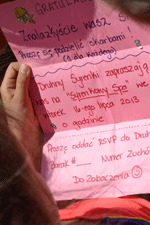 GRATULA
Znalazłyście wasz S
Proszę się podzielić skarbami!
(1 dla każdego)
Druhny Syrenki zapraszają
was na "Syrenkowy Spa" we
wtorek 16-ego lipca 2013
o godzinie
Proszę oddać RSVP do Druhn
Barak # Numer Zuchó
Do Zobaczenia ☺